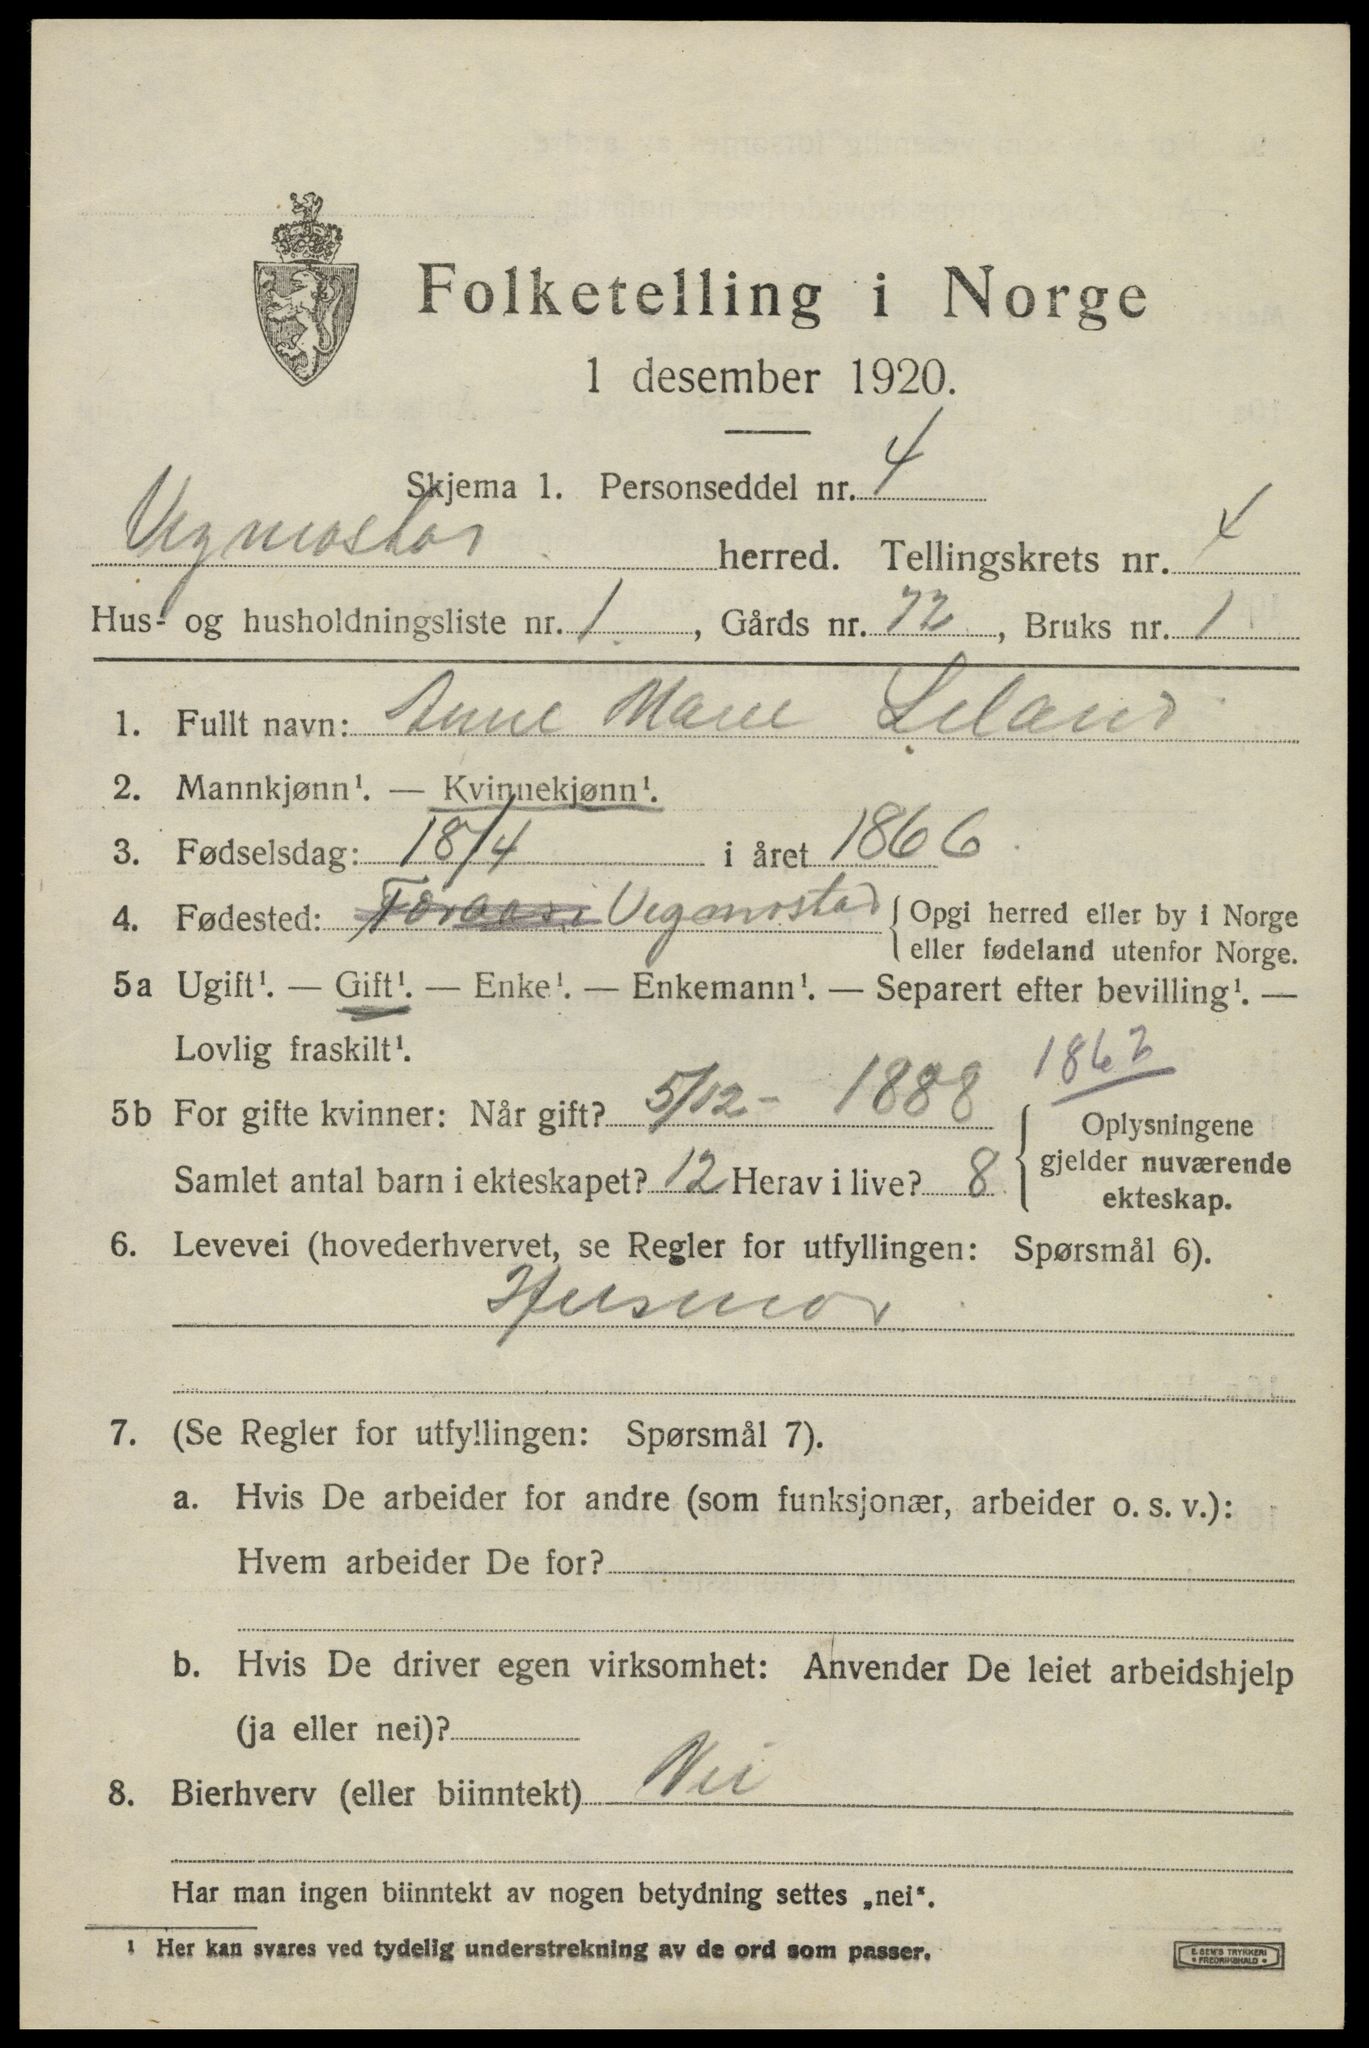 Folketelling i Norge
1 desember 1920.
Skjema 1. Personseddel nr. 4
Vegmostad herred. Tellingskrets nr. 4
Hus- og husholdningsliste nr. 1, Gårds nr. 72, Bruks nr. 1
1. Fullt navn: Anne Marie Leland
2. Mannkjønn¹. — Kvinnekjønn¹.
3. Fødselsdag: 18/4 i året 1866
4. Fødested: Vegmostad { Opgi herred eller by i Norge
eller fødeland utenfor Norge.
5a Ugift¹. — Gift¹. — Enke¹. — Enkemann¹. — Separert efter bevilling¹. —
Lovlig fraskilt¹.
1862
5b For gifte kvinner: Når gift? 5/12 - 1888 { Oplysningene
gjelder nuværende
ekteskap.
Samlet antal barn i ekteskapet? 12 Herav i live? 8
6. Levevei (hovederhvervet, se Regler for utfyllingen: Spørsmål 6).
Husmor
7. (Se Regler for utfyllingen: Spørsmål 7).
a. Hvis De arbeider for andre (som funksjonær, arbeider o. s. v.):
Hvem arbeider De for?
b. Hvis De driver egen virksomhet: Anvender De leiet arbeidshjelp
(ja eller nei)?
8. Bierhverv (eller biinntekt) Nei
Har man ingen biinntekt av nogen betydning settes „nei“.
¹ Her kan svares ved tydelig understrekning av de ord som passer.
E. SEM'S TRYKKERI
* FREDRIKSHALD *